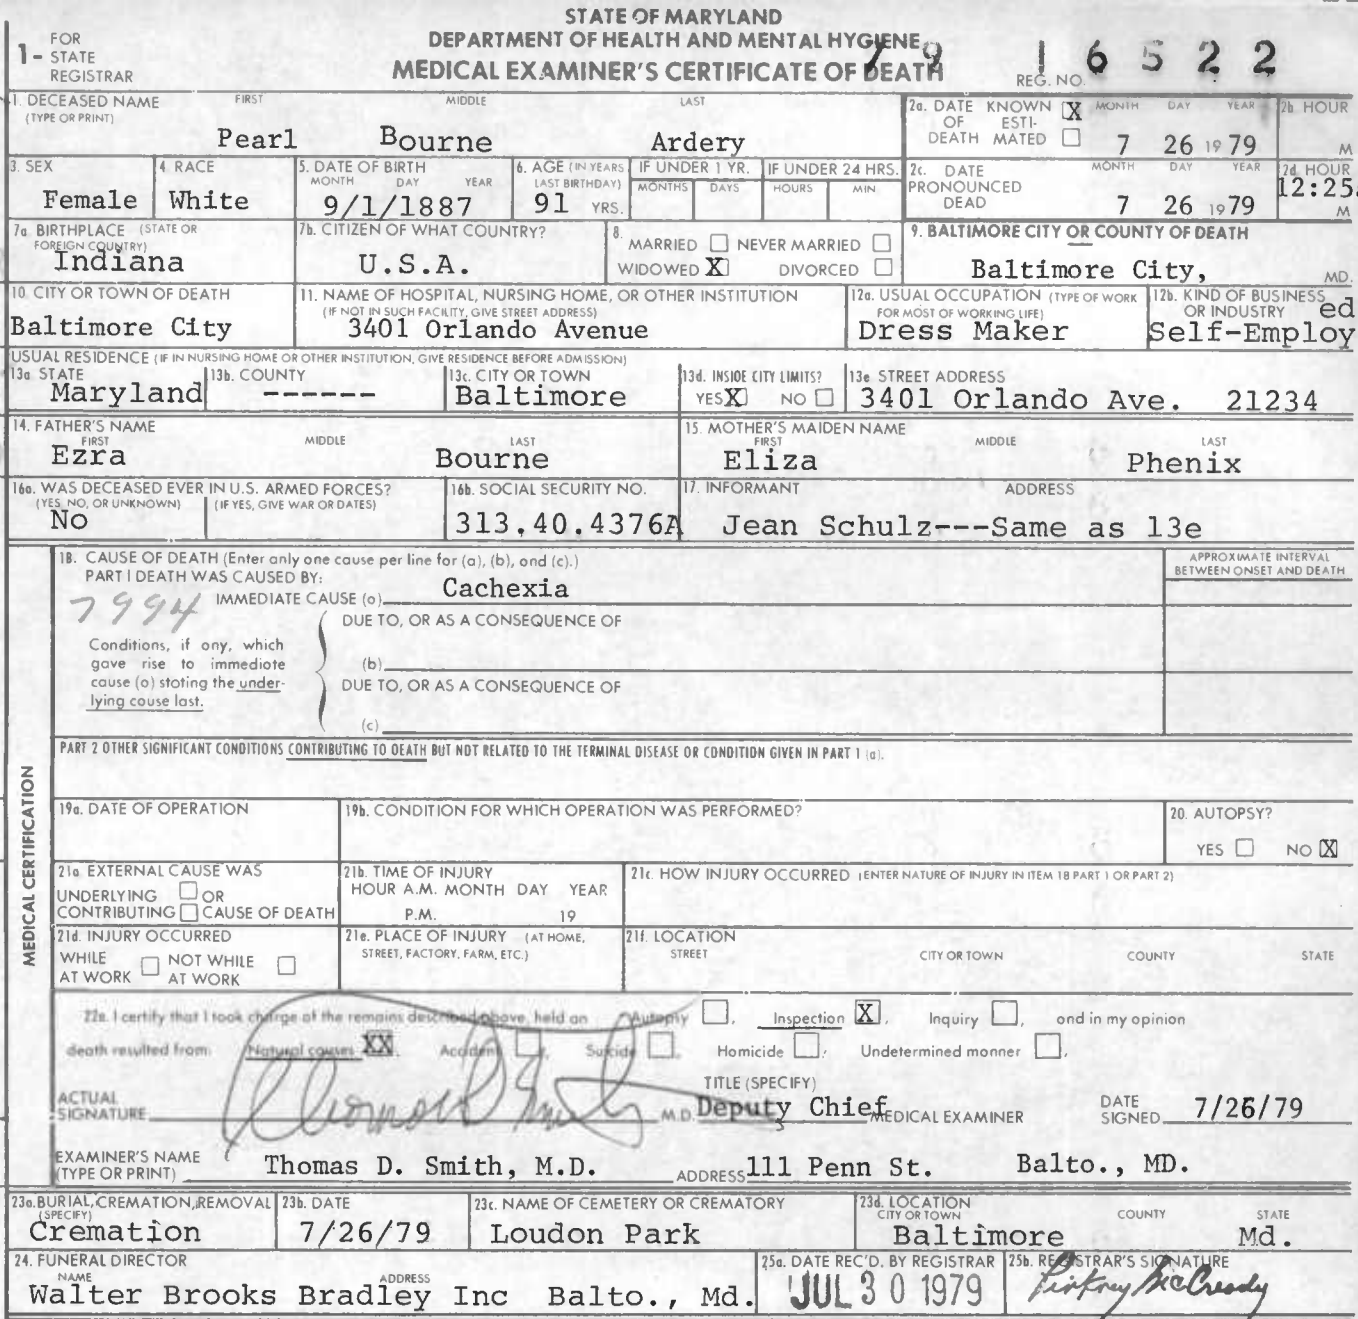 STATE OF MARYLAND
DEPARTMENT OF HEALTH AND MENTAL HYGIENE
MEDICAL EXAMINER'S CERTIFICATE OF DEATH
1- FOR STATE REGISTRAR
79 16522
REG. NO.
1. DECEASED NAME (TYPE OR PRINT) FIRST MIDDLE LAST
Pearl Bourne Ardery
2a. DATE OF DEATH KNOWN X ESTIMATED MONTH DAY YEAR
7 26 1979
2b. HOUR M
3. SEX
Female
4. RACE
White
5. DATE OF BIRTH MONTH DAY YEAR
9/1/1887
6. AGE (IN YEARS LAST BIRTHDAY)
91 YRS.
IF UNDER 1 YR. MONTHS DAYS
IF UNDER 24 HRS. HOURS MIN
2c. DATE PRONOUNCED DEAD MONTH DAY YEAR
7 26 1979
2d. HOUR
12:25a M
7a. BIRTHPLACE (STATE OR FOREIGN COUNTRY)
Indiana
7b. CITIZEN OF WHAT COUNTRY?
U.S.A.
8. MARRIED NEVER MARRIED
WIDOWED X DIVORCED
9. BALTIMORE CITY OR COUNTY OF DEATH
Baltimore City, MD.
10. CITY OR TOWN OF DEATH
Baltimore City
11. NAME OF HOSPITAL, NURSING HOME, OR OTHER INSTITUTION
(IF NOT IN SUCH FACILITY, GIVE STREET ADDRESS)
3401 Orlando Avenue
12a. USUAL OCCUPATION (TYPE OF WORK FOR MOST OF WORKING LIFE)
Dress Maker
12b. KIND OF BUSINESS OR INDUSTRY
Self-Employed
USUAL RESIDENCE (IF IN NURSING HOME OR OTHER INSTITUTION, GIVE RESIDENCE BEFORE ADMISSION)
13a. STATE
Maryland
13b. COUNTY
------
13c. CITY OR TOWN
Baltimore
13d. INSIDE CITY LIMITS?
YES X NO
13e. STREET ADDRESS
3401 Orlando Ave. 21234
14. FATHER'S NAME FIRST MIDDLE LAST
Ezra Bourne
15. MOTHER'S MAIDEN NAME FIRST MIDDLE LAST
Eliza Phenix
16a. WAS DECEASED EVER IN U.S. ARMED FORCES?
(YES, NO, OR UNKNOWN) (IF YES, GIVE WAR OR DATES)
No
16b. SOCIAL SECURITY NO.
313.40.4376A
17. INFORMANT ADDRESS
Jean Schulz---Same as 13e
MEDICAL CERTIFICATION
18. CAUSE OF DEATH (Enter only one cause per line for (a), (b), and (c).)
PART I DEATH WAS CAUSED BY:
APPROXIMATE INTERVAL BETWEEN ONSET AND DEATH
7994
IMMEDIATE CAUSE (a) Cachexia
DUE TO, OR AS A CONSEQUENCE OF
Conditions, if any, which gave rise to immediate cause (a) stating the underlying cause last.
(b)
DUE TO, OR AS A CONSEQUENCE OF
(c)
PART 2 OTHER SIGNIFICANT CONDITIONS CONTRIBUTING TO DEATH BUT NOT RELATED TO THE TERMINAL DISEASE OR CONDITION GIVEN IN PART 1 (a).
19a. DATE OF OPERATION
19b. CONDITION FOR WHICH OPERATION WAS PERFORMED?
20. AUTOPSY?
YES NO X
21a. EXTERNAL CAUSE WAS
UNDERLYING OR
CONTRIBUTING CAUSE OF DEATH
21b. TIME OF INJURY
HOUR A.M. MONTH DAY YEAR
P.M. 19
21c. HOW INJURY OCCURRED (ENTER NATURE OF INJURY IN ITEM 18 PART 1 OR PART 2)
21d. INJURY OCCURRED
WHILE AT WORK NOT WHILE AT WORK
21e. PLACE OF INJURY (AT HOME, STREET, FACTORY, FARM, ETC.)
21f. LOCATION
STREET CITY OR TOWN COUNTY STATE
22a. I certify that I took charge of the remains described above, held an Autopsy , Inspection X , Inquiry , and in my opinion
death resulted from: Natural causes XX, Accident , Suicide , Homicide , Undetermined manner ,
ACTUAL SIGNATURE Thomas D. Smith M.D.
TITLE (SPECIFY)
Deputy Chief MEDICAL EXAMINER
DATE SIGNED 7/26/79
EXAMINER'S NAME (TYPE OR PRINT) Thomas D. Smith, M.D. ADDRESS 111 Penn St. Balto., MD.
23a. BURIAL, CREMATION, REMOVAL (SPECIFY)
Cremation
23b. DATE
7/26/79
23c. NAME OF CEMETERY OR CREMATORY
Loudon Park
23d. LOCATION CITY OR TOWN COUNTY STATE
Baltimore Md.
24. FUNERAL DIRECTOR
NAME ADDRESS
Walter Brooks Bradley Inc Balto., Md.
25a. DATE REC'D. BY REGISTRAR
JUL 30 1979
25b. REGISTRAR'S SIGNATURE
McCready